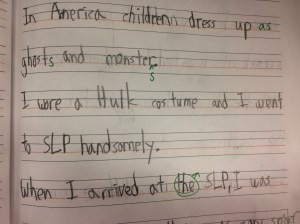 In America childrenn dress up as
ghosts and monsters
s
I wore a Hulk costume and I went
to SLP handsomely.
When I arrived at the SLP, I was